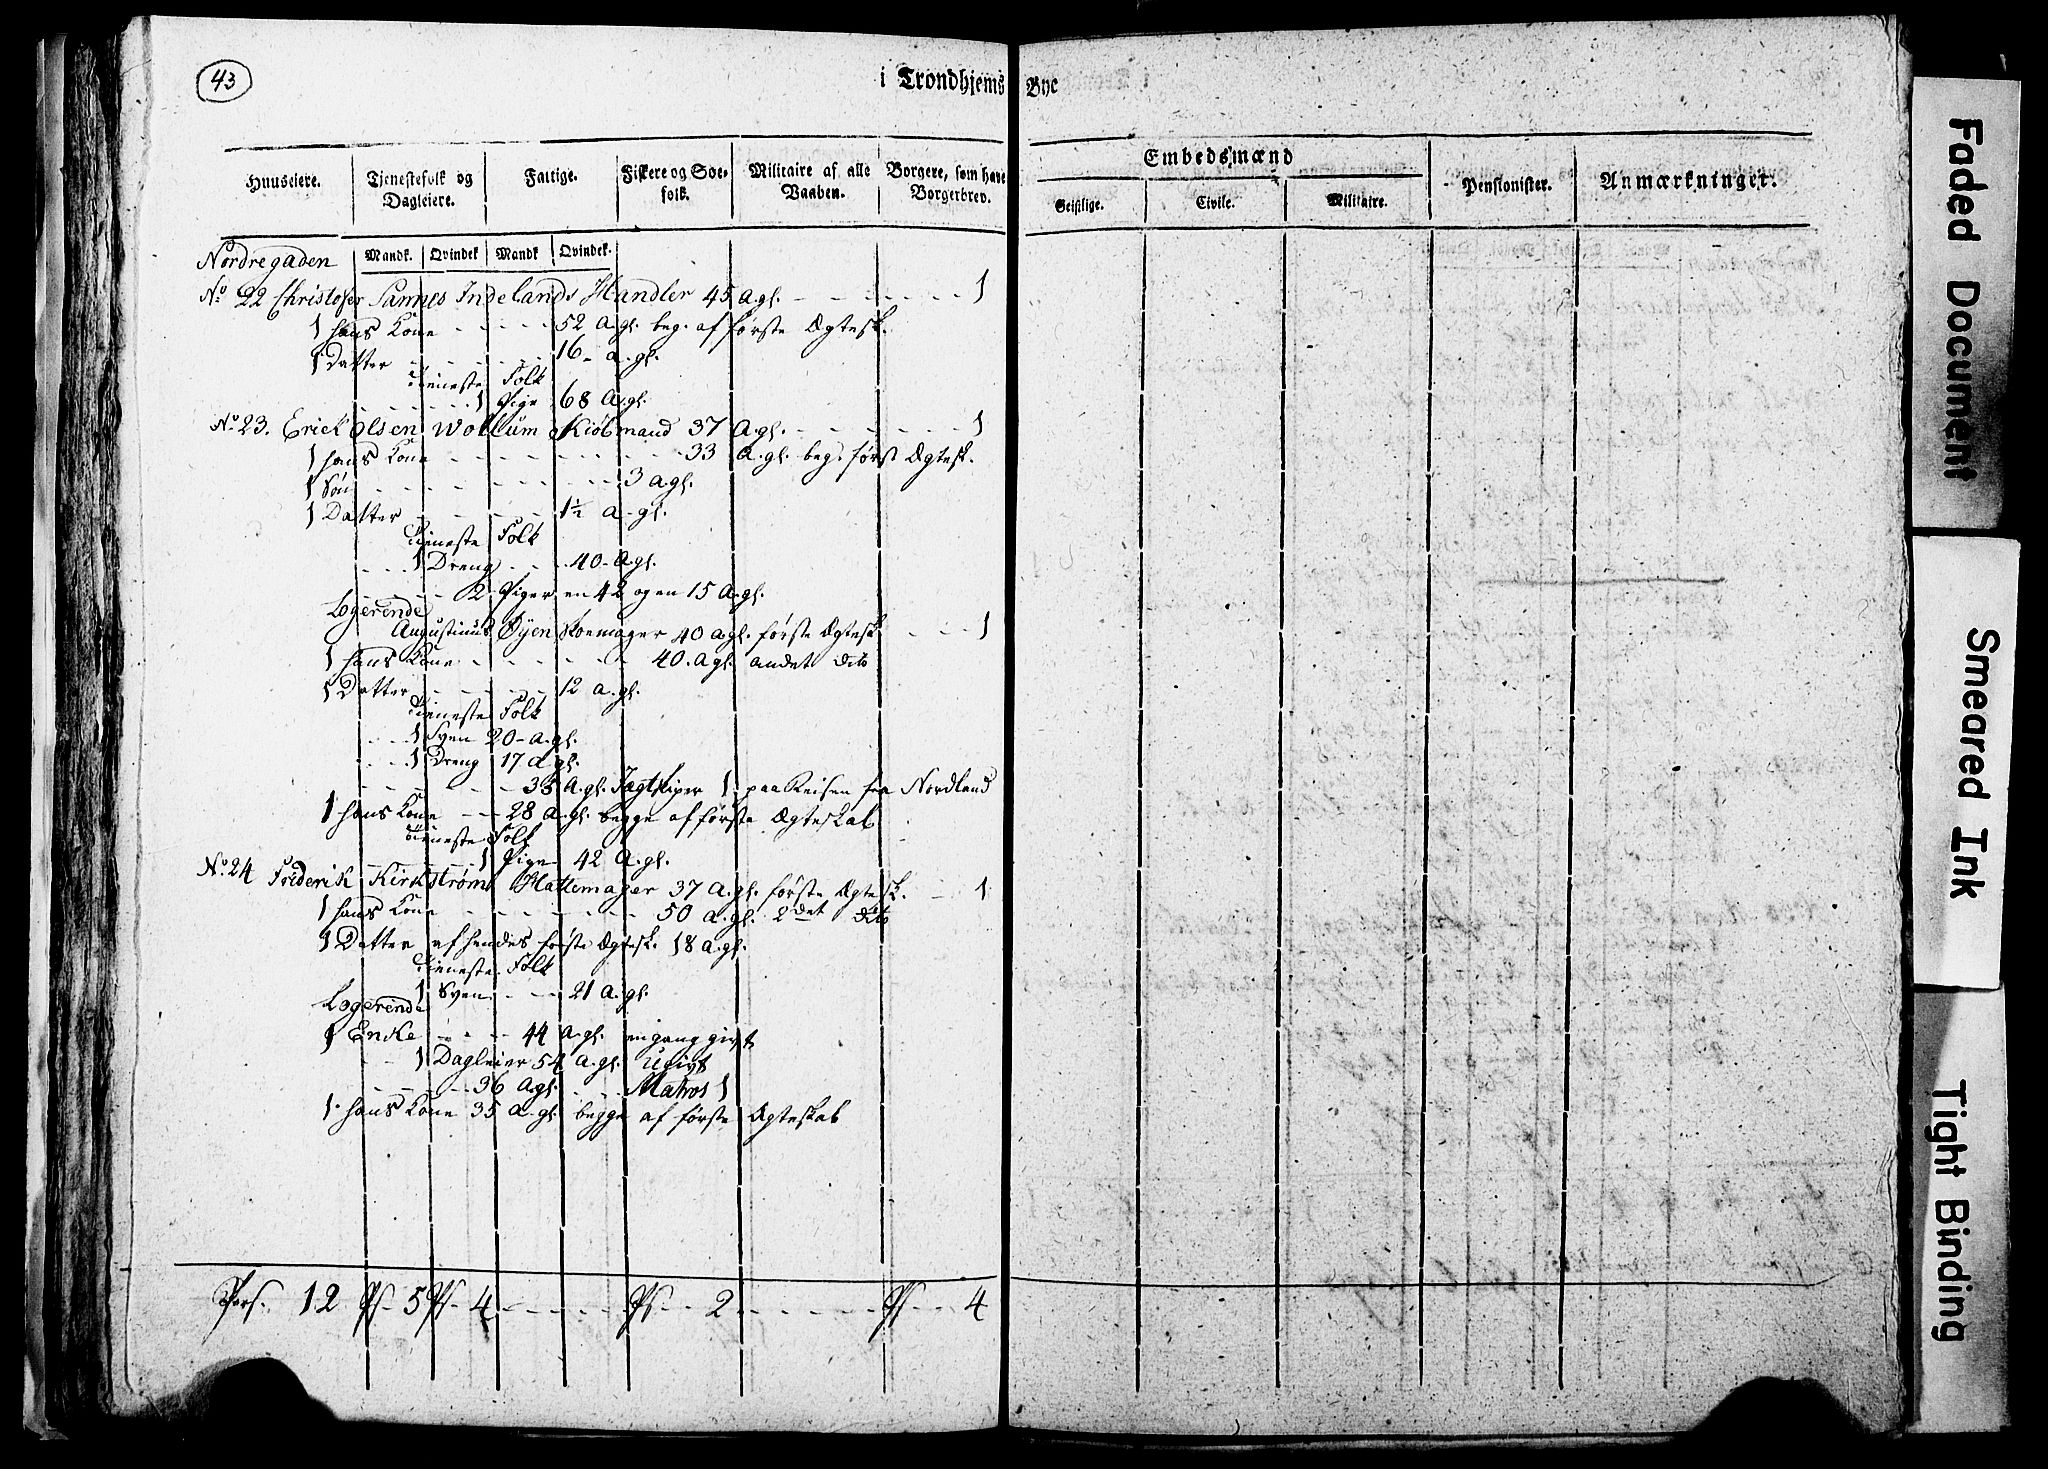 43
i Trondhjems Bye
Huuseiere. Tjenestefolk og Dagleiere. Fattige. Fiskere og Søefolk. Militaire af alle Vaaben. Borgere, som have Borgerbrev. Embedsmænd Geistlige. Civile. Militaire. Pensionister. Anmærkninger.
Mandk. Qvindek Mandk Qvindek.
Nordregaden
No 22 Christofer Sannes Indelands Handler 45 A. gl. - - - - - - 1
1 hans Kone - - - - - 52 A. gl. beg. af første Ægtesk.
1 Datter - - - - - 16 - a. gl.
Tieneste Folk
- - - - - - 1 Pige 68 A. gl.
No 23. Erick Olsen Wollum Kiøbmand 37 A. gl. - - - - - - 1
1 hans Kone - - - - - - - - 33 A. gl. beg. først Ægtesk.
1 Søn - - - - - - - - - 3 a gl.
1 Datter - - - - - - 1½ a - gl.
Tieneste Folk
- - - 1 Dreng - - - 40 - A. gl.
- - - - 2 Piger en 42 og en 15 A. gl.
Logerende
Augustinus Øyen Skoemager 40 a. gl. første Ægtesk. - - - 1
1 hans Kone - - - - - - 40. A gl. andet dito
1 Datter - - - - - 12 a. gl.
Tieneste Folk
- - - 1 Sven 20 - a. gl.
- - - 1 Dreng 17 a gl.
- - - - - - 33 A. gl. Jægtskiper 1 paa Reisen fra Nordland
1 hans Kone - - - 28 a. gl. begge af første Ægteskab
Tieneste Folk
- - - - - 1 Pige 42 A. gl.
No 24 Friderik Kirkstrøm Hattemager 37 A. gl. første Ægtesk. - - 1
1 hans Kone - - - - - - - 50 a. gl. 2det dito
1 Datter af hendes første Ægtesk. 18 a. gl.
Tieneste Folk
1 Sven - - - 21 A. gl.
Logerende
1 Enke - - - - 44 A. gl. engang givt
- - 1 Dagleier 54 A. gl. Ugivt
- - - - - 36 A gl. - - Matros 1
1 hans Kone 35 A. gl. begge af første Ægteskab
Pers. 12 Ps - 5 Ps - 4 - - - - - Ps - - 2 - - - - - - Ps - - - 4
Faded Document
Smeared Ink
Tight Binding